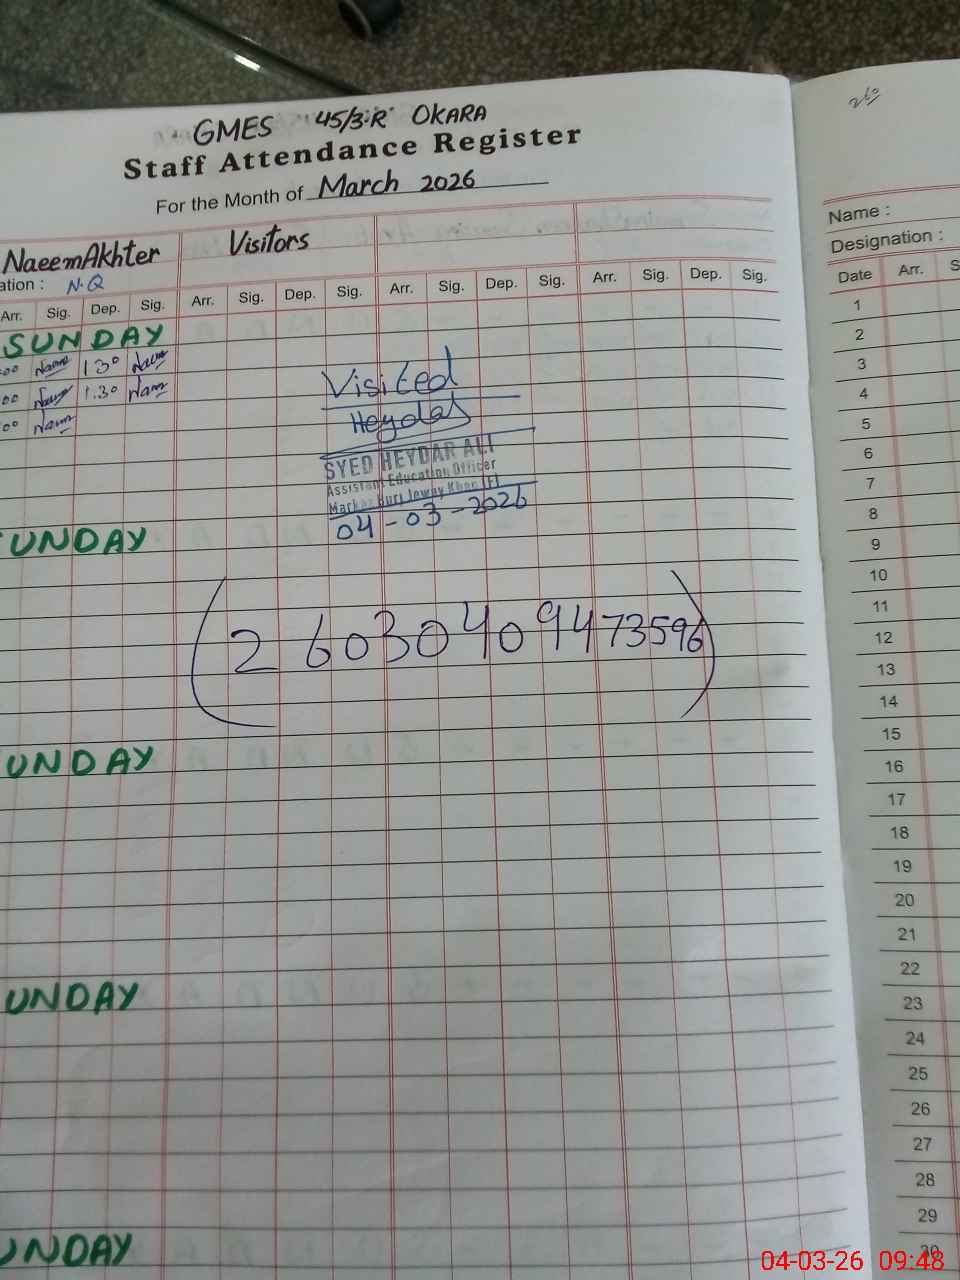 260
GMES 45/3-R OKARA
Staff Attendance Register
For the Month of March 2026
Naeem Akhter Visitors
ation : N.Q
Arr. Sig. Dep. Sig. Arr. Sig. Dep. Sig. Arr. Sig. Dep. Sig. Arr. Sig. Dep. Sig.
SUNDAY
00 Naeem 1 30 Naeem
00 Naeem 1.30 Naeem
00 Naeem
Visited
Heydar
SYED HEYDAR ALI
Assistant Education Officer
Markaz Burj Jeway Khan (F)
04-03-2026
UNDAY
(260304094473596)
UNDAY
UNDAY
UNDAY
Name :
Designation :
Date Arr. S
1
2
3
4
5
6
7
8
9
10
11
12
13
14
15
16
17
18
19
20
21
22
23
24
25
26
27
28
29
30
04-03-26 09:48